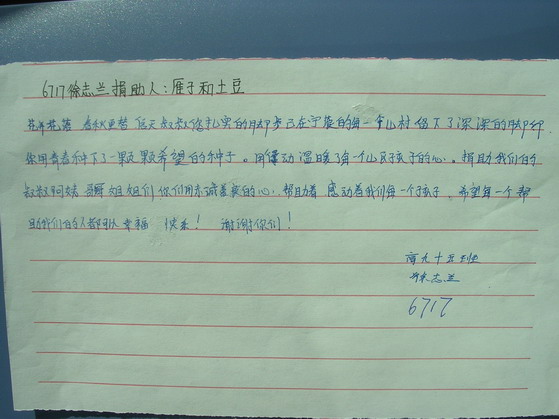 6717徐志兰捐助人：雁子和土豆
花开花落 春秋更替 伍天叔叔您扎实的脚步已在宁蒗的每一个山村留下了深深的脚印
你用青春种下了一颗颗希望的种子。用行动温暖了每一个山区孩子的心。捐助我们的
叔叔阿姨 哥哥姐姐们 你们用赤诚善良的心 帮助着 感动着我们每一个孩子。希望每一个帮
助我们的人都可以幸福 快乐！ 谢谢你们！
高九十五班
徐志兰
6717